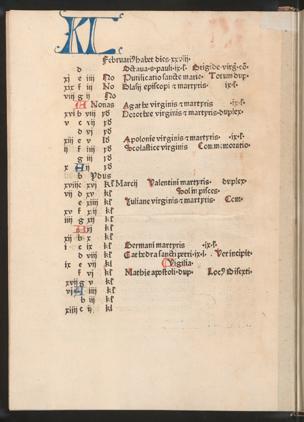 KL
Februari⁹ habet dies xxviii.
d Brigide virg
xj e iiij No Purificatio sancte marie. Totum dup.
xix f iij No Blasij episcopi ⁊ martyris. ix.l.
viij g ij No
A Nonas Agathe virginis ⁊ martyris ix.l.
xvi b viij yd Dorothee virginis ⁊ martyris.
v c vij yd
d vj yd
xiij e v yd Apolonie virginis ⁊ martyris. ix.l.
ij f iiij yd Scolastice virginis Commemoratio.
g iij yd
x A ij yd
b ydus
xviij c xvj kl Marcij Valentini martyris. duplex.
vij d xv kl Sol in pisces.
e xiiij kl Juliane virginis ⁊ martyris. Com.
xv f xiij kl
iiij g xij kl
A xj kl
xij b x kl
i c ix kl Germani martyris .ix.l.
d viij kl Cathedra sancti petri .ix.l. Ver incipit.
ix e vij kl Vigilia.
f vj kl Mathie apostoli. dup. Loc⁹ bisexti.
xvij g v kl
vj A iiij kl
b iij kl
xiiij c ij kl